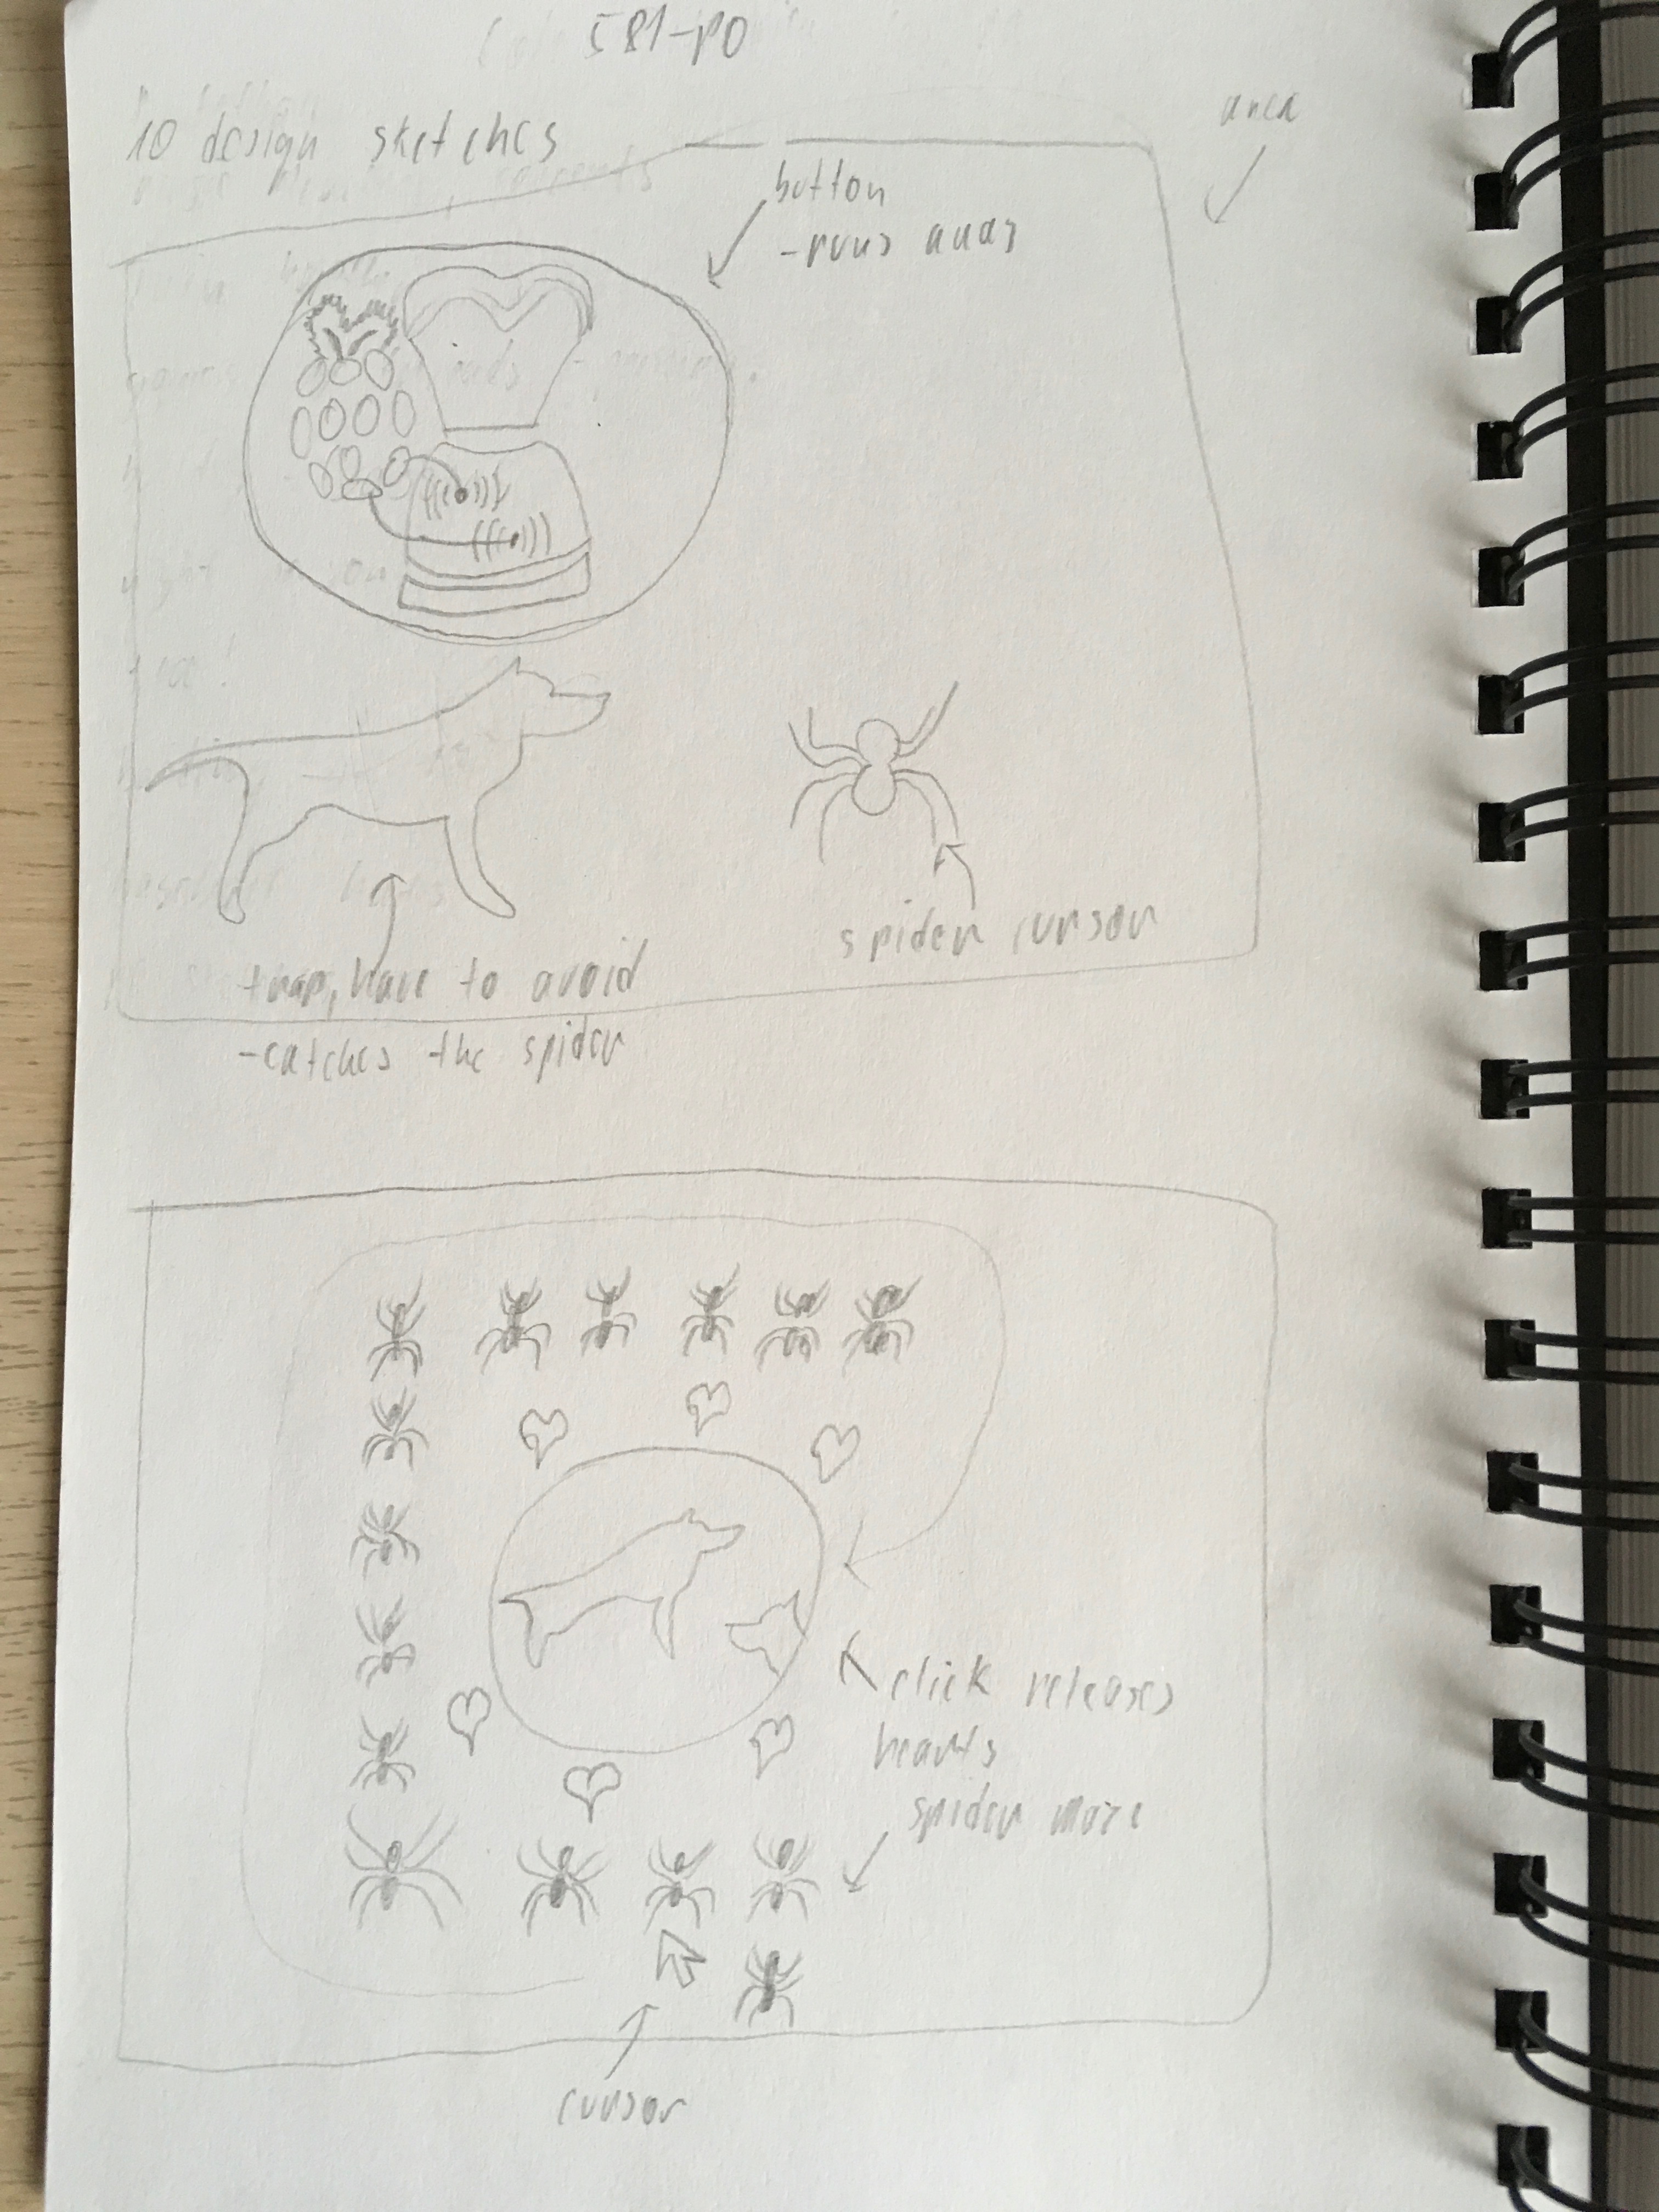 581-P0
10 design sketches
area
button
-runs away
spider cursor
trap, have to avoid
-catches the spider
click releases
hearts
spider maze
cursor